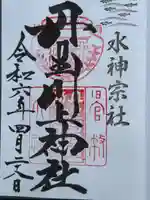 水神宗社
丹生川上神社
令和六年四月日